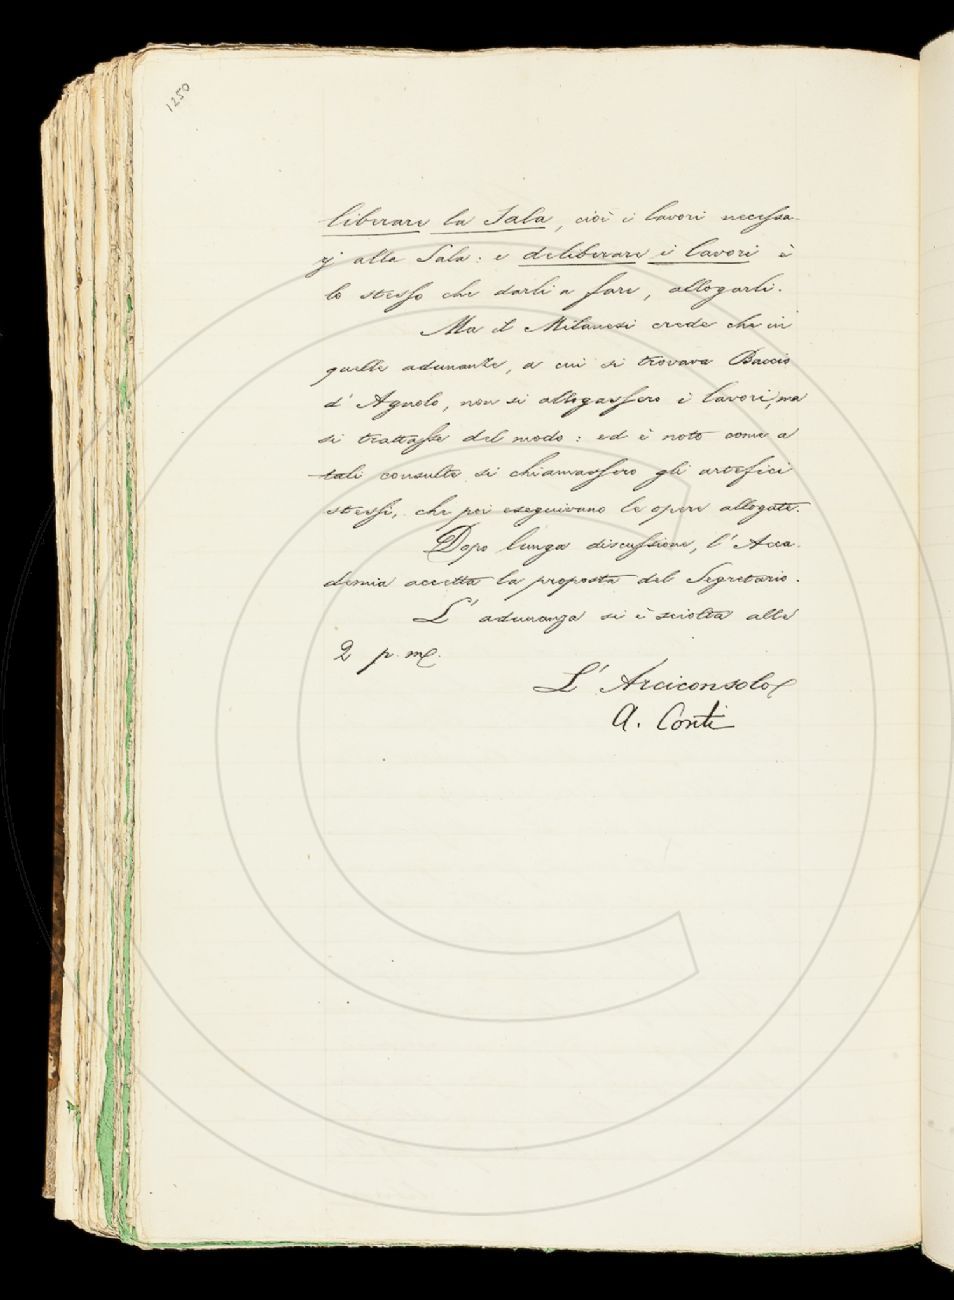 1250
liberare la Sala, cioè i lavori necessa-
rj alla Sala: e deliberare i lavori è
lo stesso che darli a fare, allogarli.
Ma il Milanesi crede che in
quelle adunanze, a cui si trovava Baccio
d'Agnolo, non si allogassero i lavori, ma
si trattasse del modo: ed è noto come a
tali consulte si chiamassero gli artefici
stessi, che poi eseguivano le opere allogate.
Dopo lunga discussione, l'Acca-
demia accetta la proposta del Segretario.
L'adunanza si è sciolta alle
2 p. m.
L'Arciconsolo
A. Conti